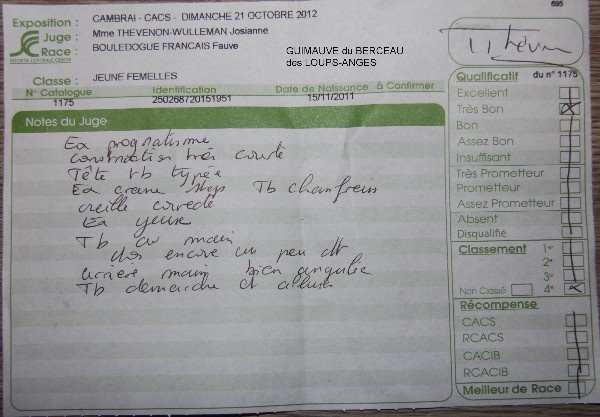 695
Exposition : CAMBRAI - CACS - DIMANCHE 21 OCTOBRE 2012
Juge : Mme THEVENON-WULLEMAN Josianne
Race : BOULEDOGUE FRANCAIS Fauve
GUIMAUVE du BERCEAU
des LOUPS-ANGES
SOCIÉTÉ CENTRALE CANINE
Classe : JEUNE FEMELLES
N° Catalogue Identification Date de Naissance à Confirmer
1175 250268720151951 15/11/2011
Notes du Juge
Ex prognatisme
construction très courte
Tête tb typée
Ex crane stop Tb chanfrein
oreille correcte
Ex yeux
Tb av main
dos encore un peu
arrière main bien angulée
Tb demarche et allure
Signature
Qualificatif du n° 1175
Excellent
Très Bon
Bon
Assez Bon
Insuffisant
Très Prometteur
Prometteur
Assez Prometteur
Absent
Disqualifié
Classement 1er
2e
3e
Non Classé 4e
Récompense
CACS
RCACS
CACIB
RCACIB
Meilleur de Race